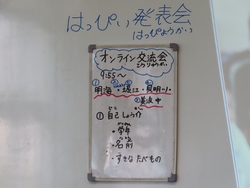 はっぴぃ発表会
はっぴょうかい
オンライン交流会
こうりゅうかい
9:55〜
① ② ③
明海・堀江・見明川小
④美浜中
①自こしょうかい
・学年
・名前
・すきなたべもの